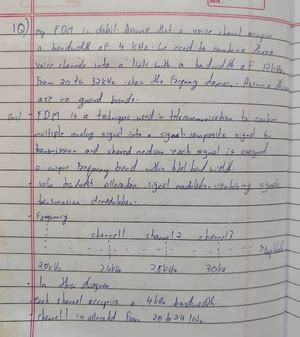 1Q) FDM in detail. Assume that a voice channel occupies
a bandwidth of 4 kHz. we need to combine three
voice channels into a link with a bandwidth of 12 kHz
From 20 to 32 kHz show the Frequency domain. Assume there
are no guard bands.
Ans) - FDM is a technique used in telecommunication to combine
multiple analog signal into a single composite signal for
transmission and shared medium each signal is assigned
a unique frequency band within total band width.
bandwidth allocation, signal modulation, combining signals
transmission demodulation.
- Frequency
channel1 channel2 channel3
20kHz 24kHz 28kHz 30kHz
- In this diagram
- each channel occupies a 4kHz bandwidth
- channel1 is allocated from 20 to 24 kHz